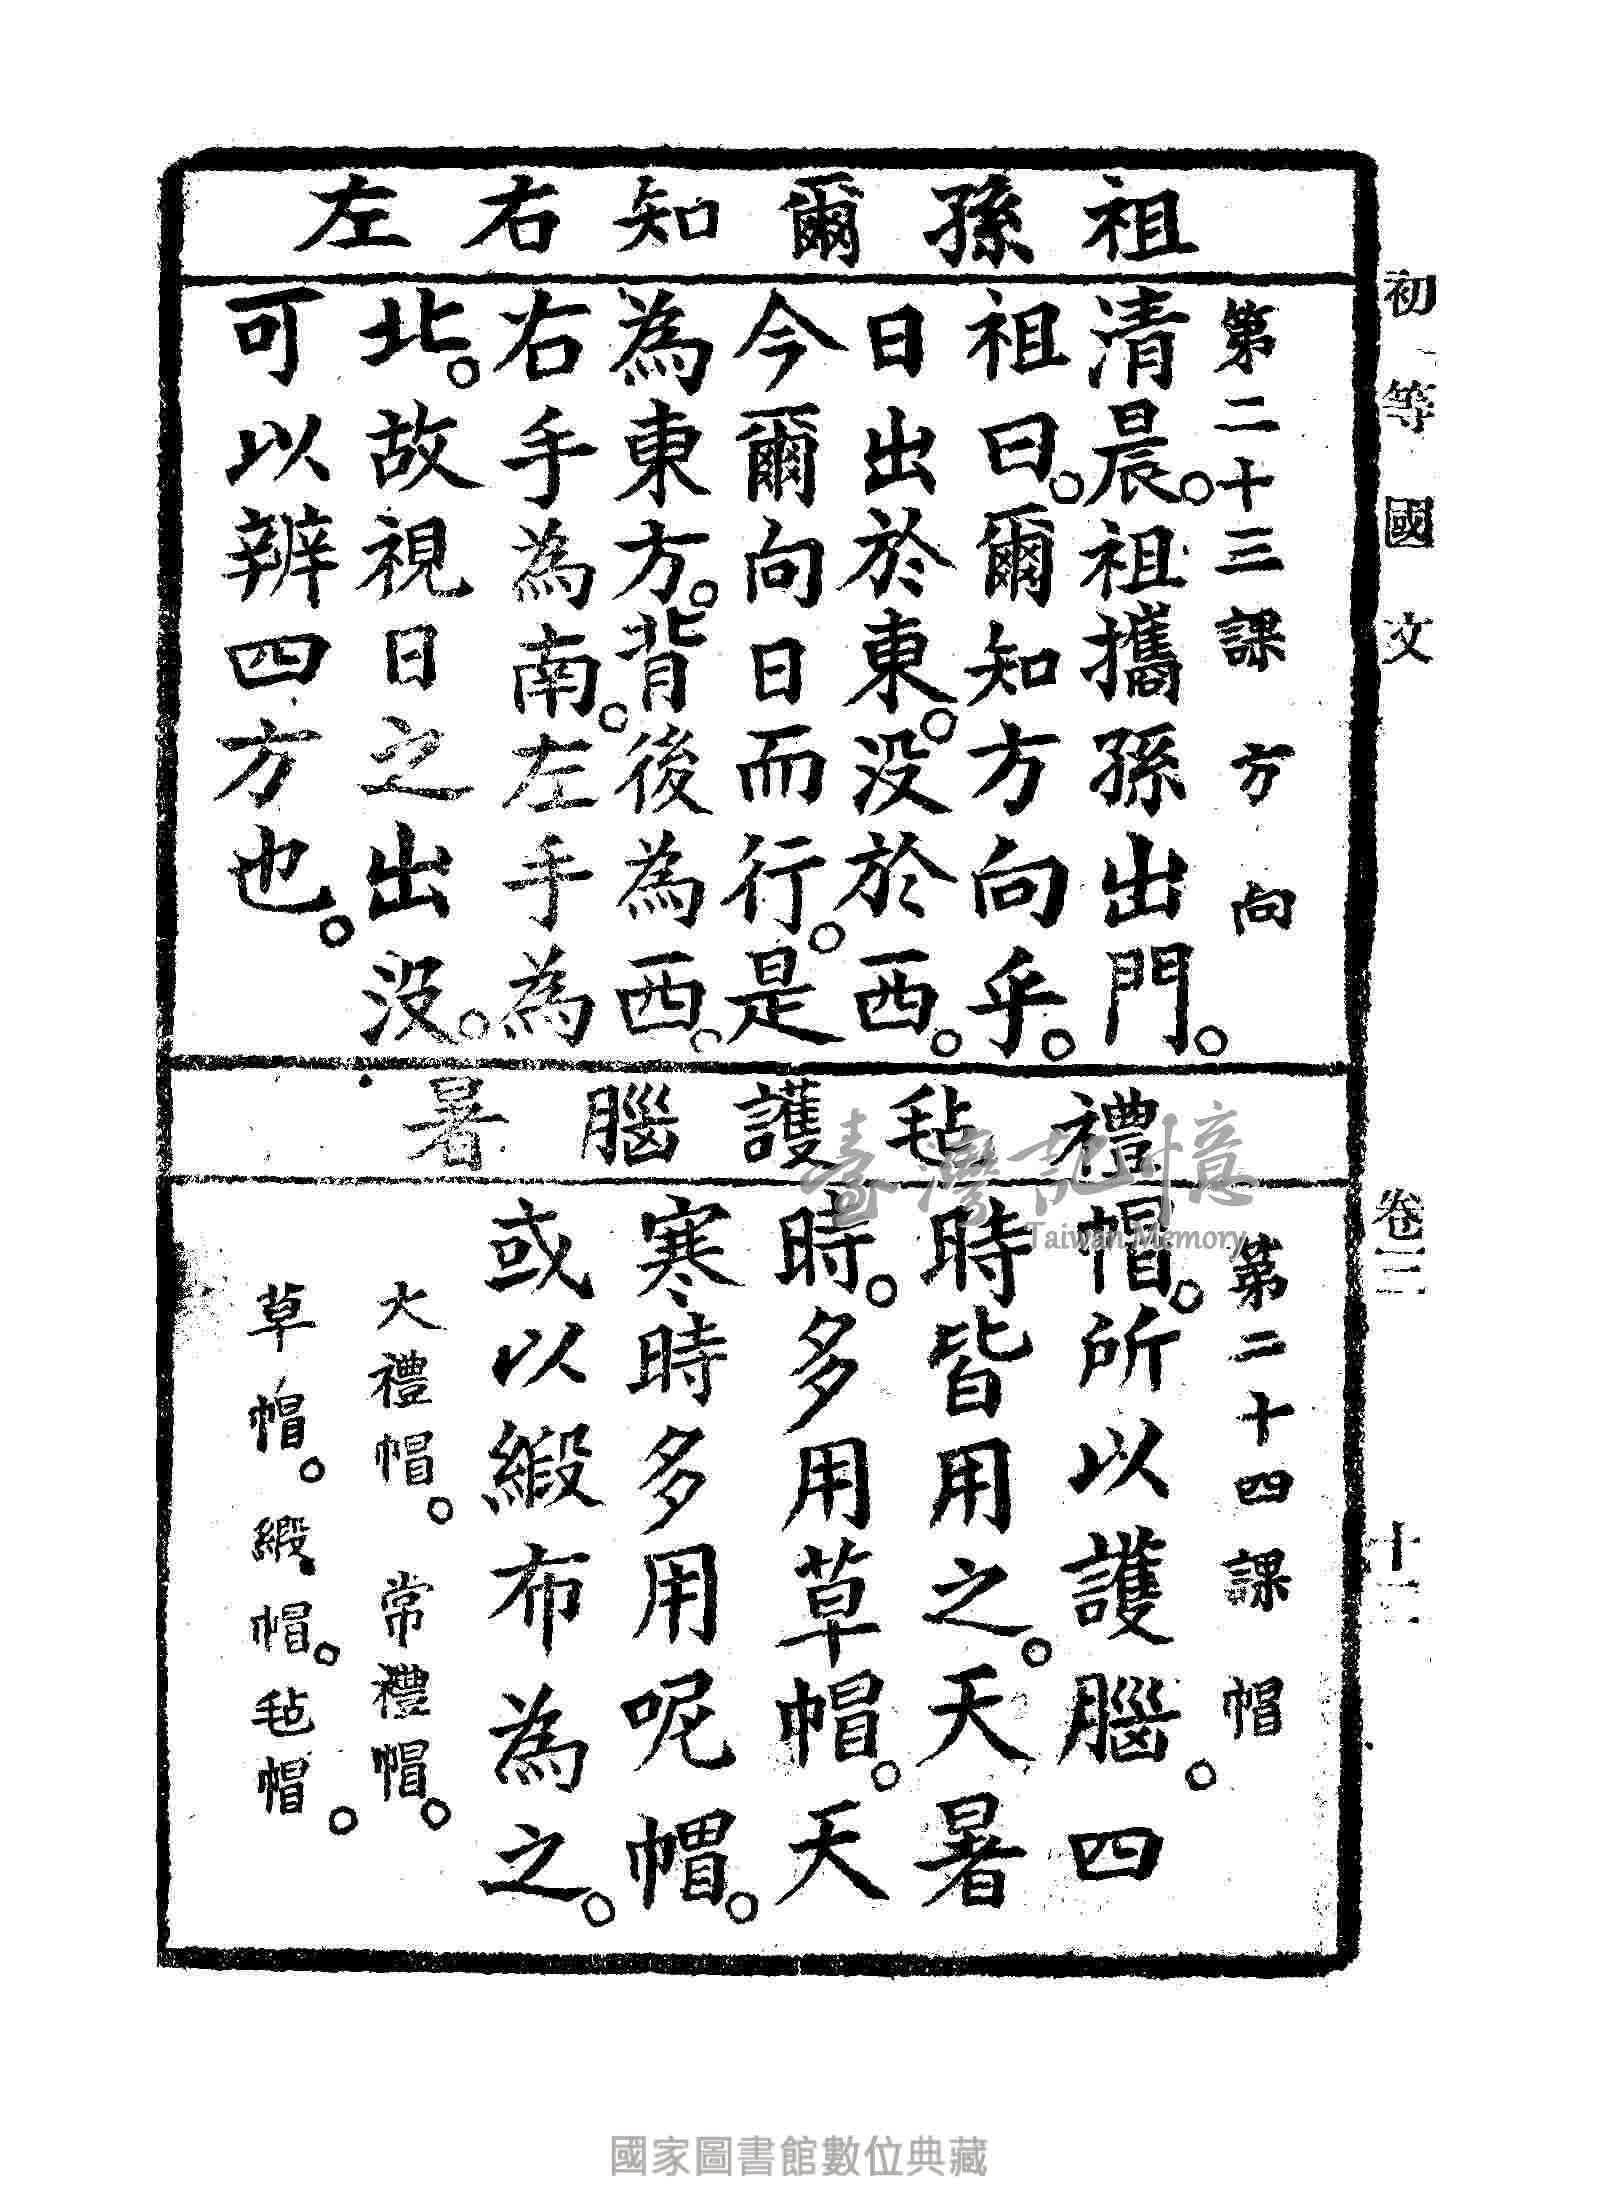 初等國文 卷三 十三
祖孫爾知右左
第二十三課 方向
清晨。祖攜孫出門。
祖曰。爾知方向乎。
日出於東。沒於西。
今爾向日而行。是
為東方。背後為西。
右手為南。左手為
北。故視日之出沒。
可以辨四方也。
禮毡護腦暑
第二十四課 帽
帽。所以護腦。四
時皆用之。天暑
時。多用草帽。天
寒時多用呢帽。
或以緞布為之。
大禮帽。常禮帽。
草帽。緞帽。毡帽。
臺灣記憶
Taiwan Memory
國家圖書館數位典藏